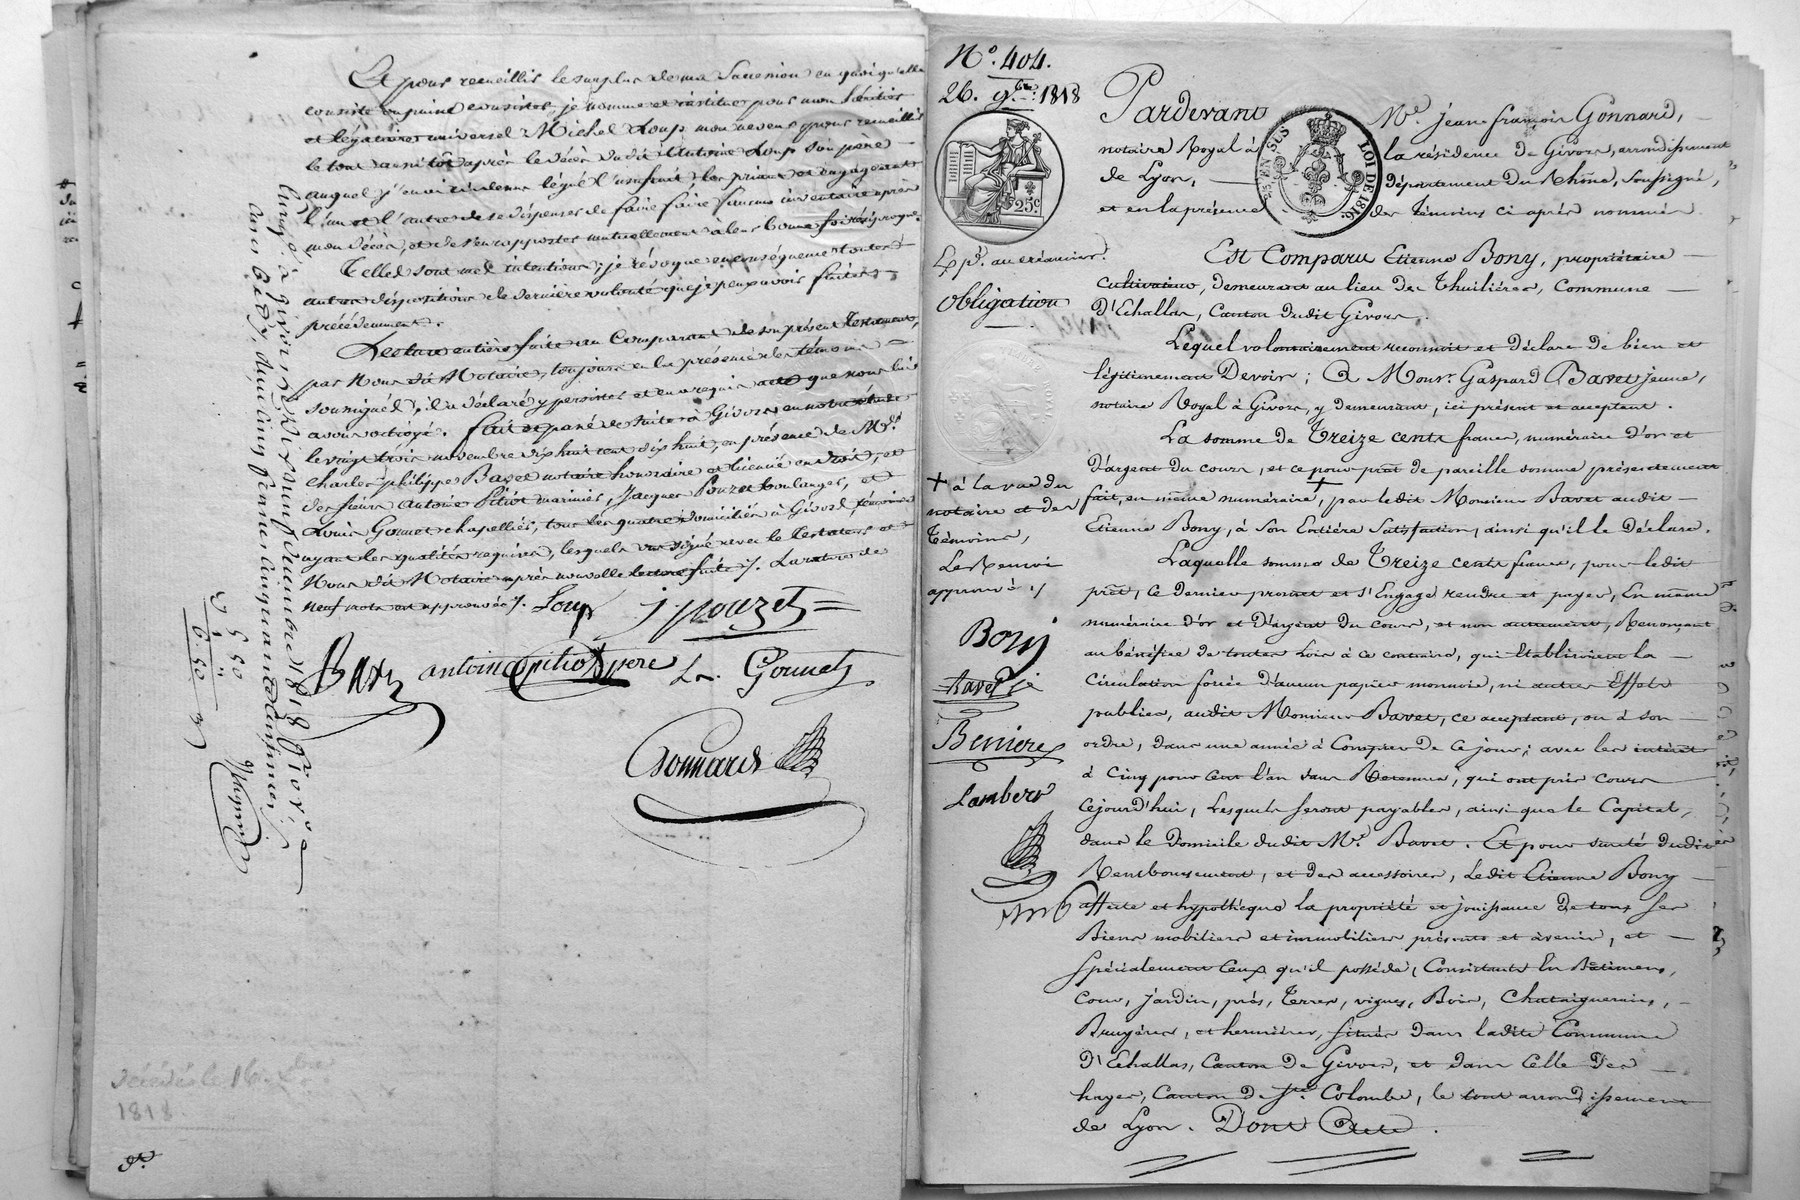 Et pour recueillir le surplus de ma succession en quoi qu'elle
consiste ou puisse consister, je nomme et institue pour mon héritier
et légataire universel Michel Loup mon neveu, pour recueillir
le tout aussitôt après le décès dudit Antoine Loup son père
auquel j'en ai ci-dessus légué l'usufruit, les priant et engageant
l'un et l'autre de se dispenser de faire faire aucun inventaire après
mon décès, et de s'en rapporter mutuellement à leur bonne foi réciproque.
Telles sont mes intentions; je révoque en conséquence toutes
autres dispositions de dernière volonté que je peux avoir faites
précédemment.
Lecture entière faite au Comparant de son présent Testament,
par Nous dit Notaire, toujours en la présence des témoins
soussignés, il a déclaré y persister et en a requis acte que nous lui
avons octroyé. fait et passé de suite à Givors en notre étude
le vingt trois novembre dix huit cent dix huit, en présence de Mrs
Charles philippe Bavet notaire honoraire et licencié en droit, et
des sieurs Antoine Pitiot marinier, Jacques Pouzet boulanger, et
Louis Gounet chapellier, tous les quatre domiciliés à Givors témoins
ayant les qualités requises, lesquels ont signé avec le testateur et
Nous dit Notaire après nouvelle lecture faite ./. La rature de
neuf mots est approuvée ./. Loup J pouzet
Bavet antoine pitiot pere Ls. Gounet
Gonnard
1818
N.º 404.
26. 9.bre 1818
25.c
EN SUS
LOI DE 1816.
Exp. au créancier.
Obligation
Pardevant Mr. Jean françois Gonnard,
notaire Royal à la résidence de Givors, arrondissement
de Lyon, Département du Rhône, soussigné,
et en la présence des témoins ci après nommés
Est Comparu Etienne Bony, propriétaire
cultivateur, demeurant au lieu des Thuilières, Commune
D'Echallas, Canton dudit Givors.
Lequel volontairement reconnoit et déclare de bien et
légitimement Devoir; A Monsr. Gaspard Bavet jeune,
notaire Royal à Givors, y demeurant, ici présent et acceptant.
La somme de Treize cents francs, numéraire d'or et
d'argent du cours, et ce pour prêt de pareille somme présentement
fait, en même numéraire + par ledit Monsieur Bavet audit
Etienne Bony, à son Entière Satisfaction, ainsi qu'il le Déclare.
Laquelle somme de Treize cents francs, pour ledit
prêt, ce dernier promet et s'Engage rendre et payer, En même
numéraire d'or et D'argent du cours, et non autrement, Renonçant
au bénéfice de toutes Lois à ce contraires, qui Etabliroient la
circulation forcée d'aucun papier monnoie, ni autres Effets
publics, audit Monsieur Bavet, ce acceptant, ou à son
ordre, dans une année à Compter de ce jour; avec les intérêts
à Cinq pour cent l'an sans Retenue, qui ont pris cours
Cejourd'hui, Lesquels seront payables, ainsi que le Capital,
dans le Domicile dudit Mr. Bavet. Et pour sureté dudit
Remboursement, et des accessoires, Ledit Etienne Bony
affecte et hypothèque la propriété et jouissance De tous Ses
Biens mobiliers et immobiliers présents et àvenir, et
spécialement Ceux qu'il possède, Consistants En Bâtimens,
Cour, jardin, prés, Terres, vignes, Bois, Chataigneraies,
Bruyères, et hermières, situés dans ladite Commune
D'Echallas, Canton de Givors, et dans Celle Des
hayes, Canton De Ste. Colombe, le tout arrondissement
de Lyon. Dont Acte.
+ à la vue du
notaire et des
témoins,
Le Renvoi
approuvé ./.
Bony
Bavet je
Beniere
Lambert